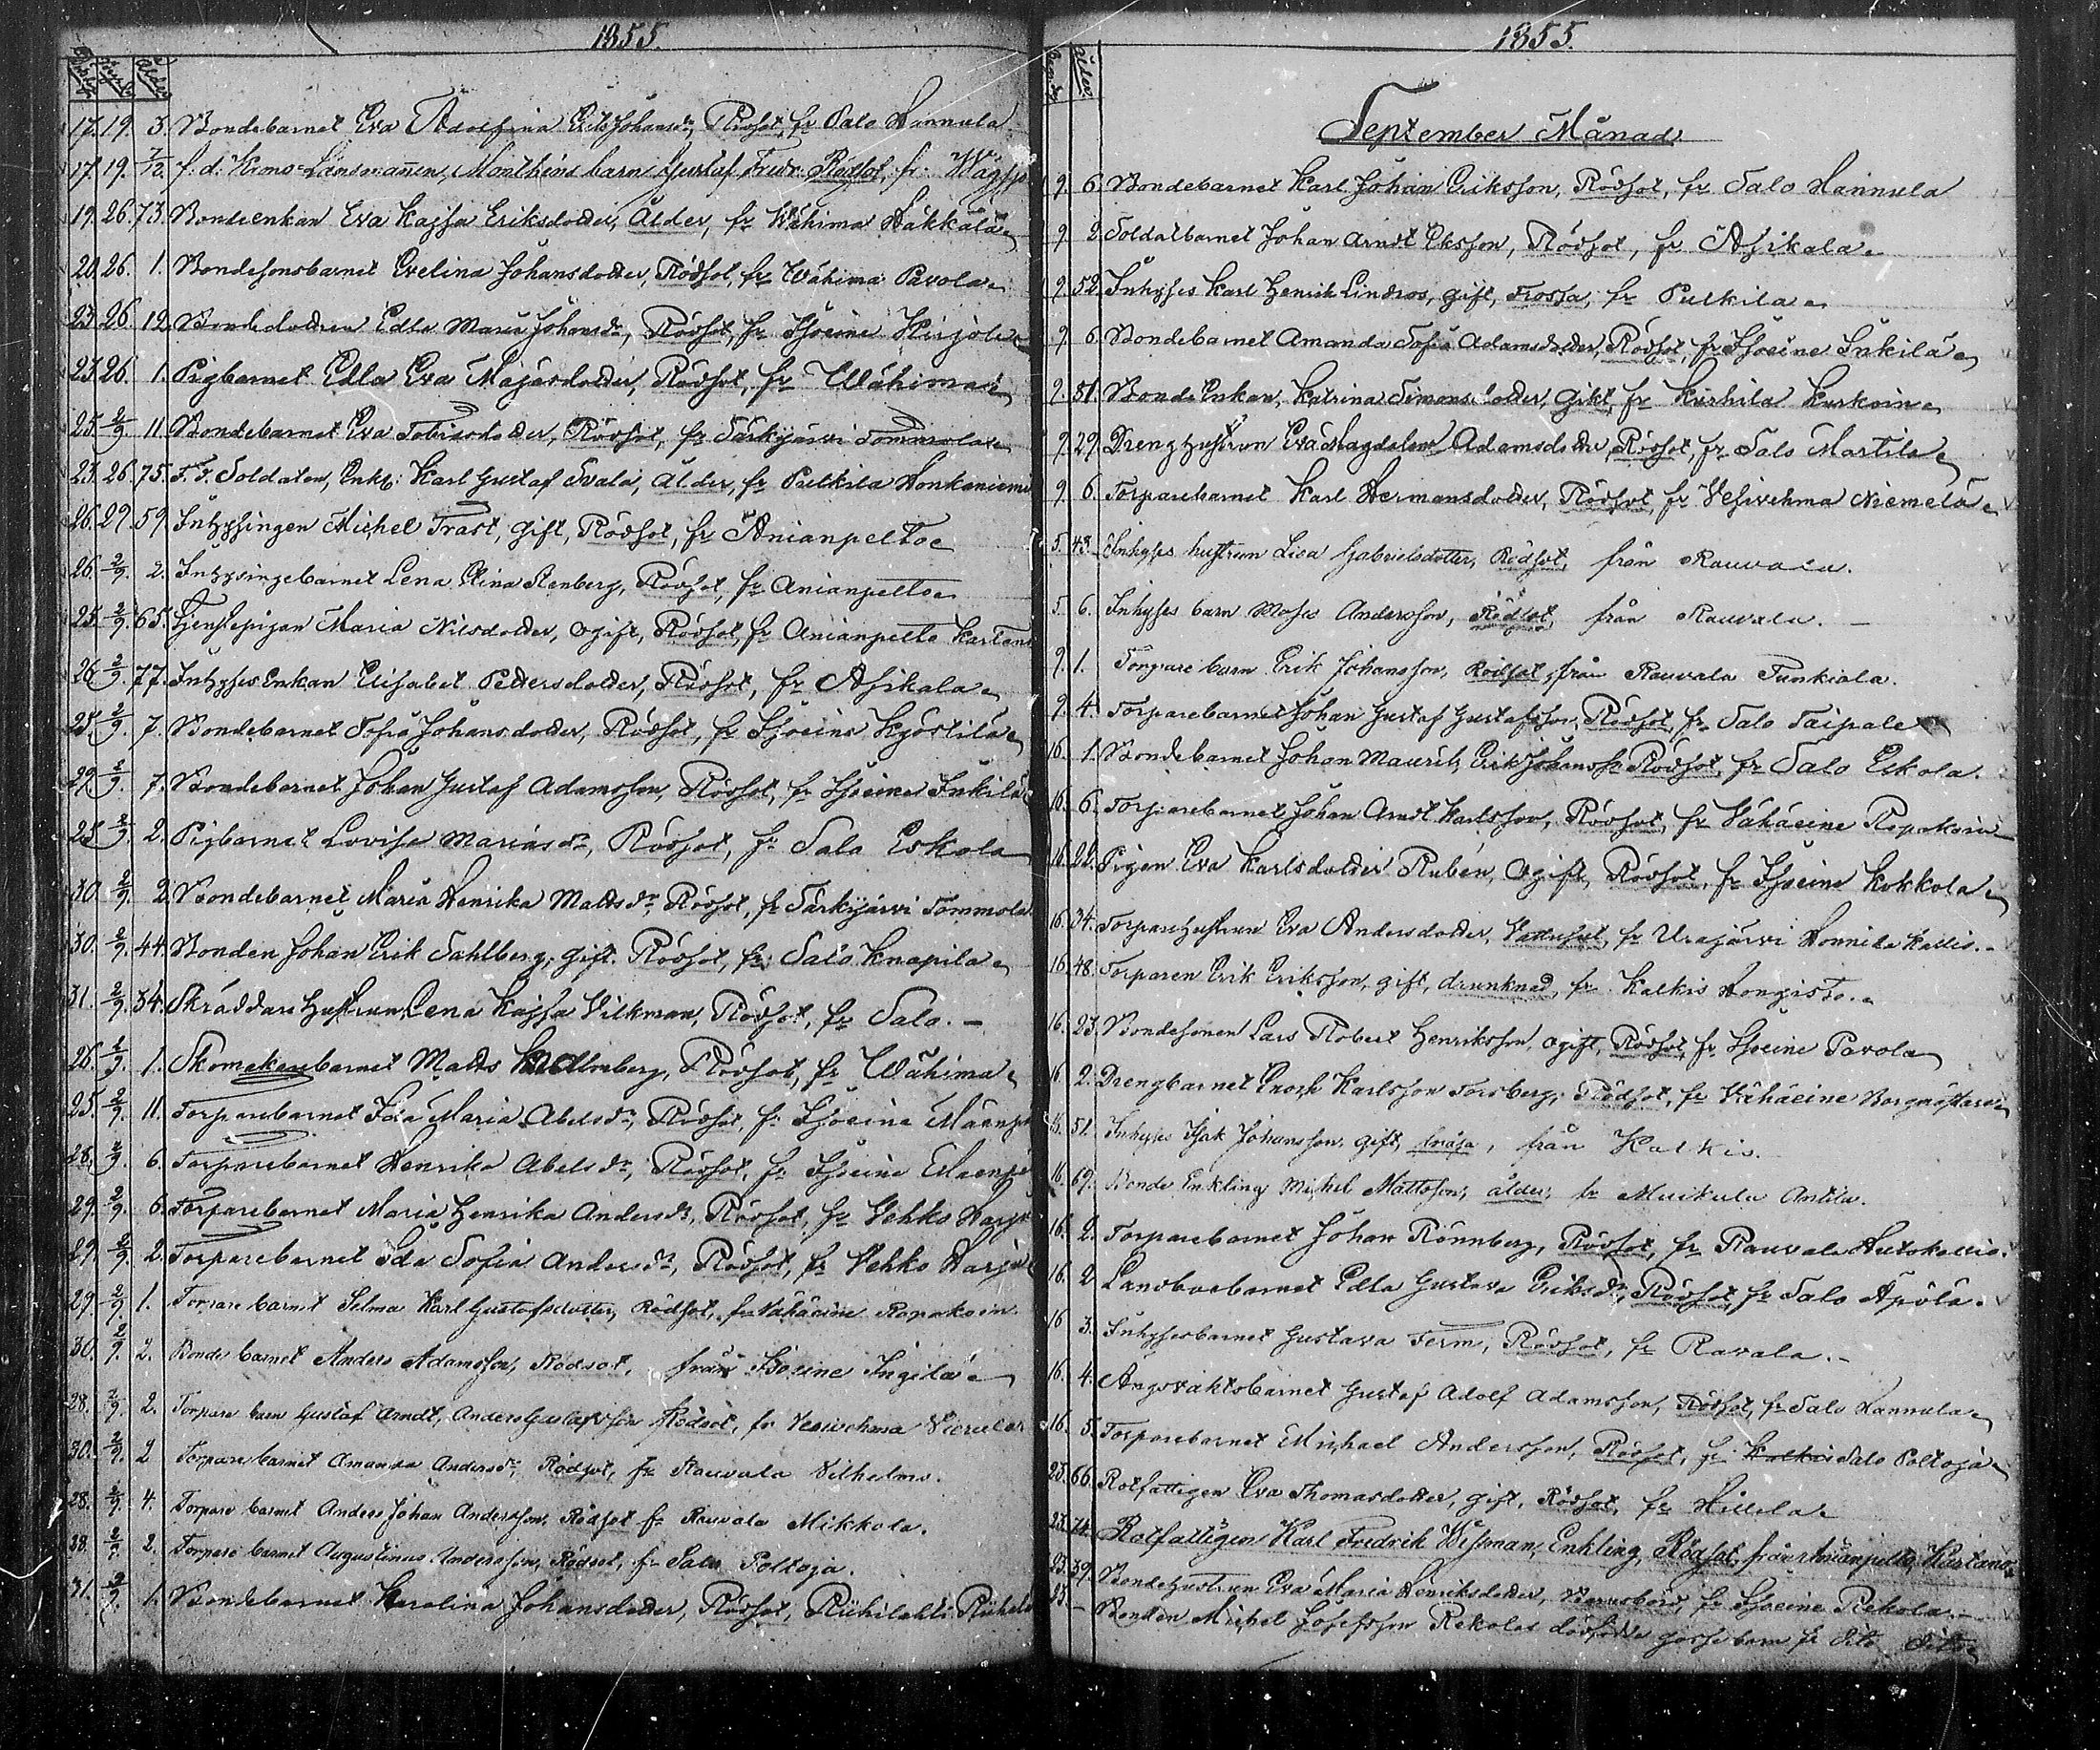 1855.
Död Begr. Ålder
17. 19. 3. Bondebarnet Eva Adolfina Erik Johansdr, Rödsot, fr Salo Hannula
17. 19. 7/12. f. d. Krono-Länsmannen, Monthéns barn Gustaf Fredr. Rödsot, fr.
19. 26. 73. Bondeenkan Eva Kajsa Eriksdotter, Ålder, fr Wähimaa Häkkälä
20. 26. 1. Bondesonsbarnet Evelina Johansdotter, Rödsot, fr Wähimaa Pavola
23. 26. 12. Bondedottren Edla Maria Johansdr, Rödsot, fr Isoeine Hirjole
23. 26. 1. Pigbarnet Edla Eva Majasdotter, Rödsot, fr Wähimaa
25. 2/9. 11. Bondebarnet Eva Tobiesdotter, Rödsot, fr Särkijärvi Tommola
23. 26. 75. F. d. Soldaten, Enkl: Karl Gustaf Svala, Ålder, fr Pulkila Honkaniemi
26. 29. 59. Inhysingen Michel Trast, gift, Rödsot, fr Anianpelto
26. 2/9. 2. Inhysingebarnet Lena Stina Stenberg, Rödsot, fr Anianpelto
25. 2/9. 65. Tjenstepigan Maria Nilsdotter, ogift, Rödsot, fr Anianpelto Kartano
26. 2/9. 77. InhysesEnkan Elisabet Pettersdotter, Rödsot, fr Asikala
25. 2/9. 7. Bondebarnet Sofia Johansdotter, Rödsot, fr Isoeine Kyöstilä
29. 2/9. 7. Bondebarnet Johan Gustaf Adamsson, Rödsot, fr Isoeine Inkilä
25. 2/9. 2. Pigbarnet Lovisa Mariasdr, Rödsot, fr Salo Eskola
30. 2/9. 2. Bondebarnet Maria Henrika Mattsdr, Rödsot, fr Särkijärvi Tommola
30. 2/9. 44. Bonden Johan Erik Sahlberg, gift. Rödsot, fr. Salo Knapila
31. 2/9. 34. Skräddare Hustrun Lena Kajsa Vilkman, Rödsot, fr Salo. –
26. 2/9. 1. Skomakarebarnet Matts Malmberg, Rödsot, fr Wähimaa
25. 2/9. 11. Torparebarnet Ida Maria Abelsdr, Rödsot, fr Isoeine
28. 2/9. 6. Torparebarnet Henrika Abelsdr, Rödsot, fr Isoeine
29. 2/9. 6. Torparebarnet Maria Henrika Andersdr, Rödsot, fr Vehko Harju
29. 2/9. 2. Torparebarnet Ida Sofia Andersdr, Rödsot, fr Vehko Harju
29. 2/9. 1. Torpare barnet Selma Karl Gustafsdotter, Rödsot, fr Vähäeine Repokoin
30. 2/9. 2. Bonde barnet Anders Adamsson, Rödsot, från Isoeine Ingilä
28. 2/9. 2. Torpare barn Gustaf Arndt, Anders Gustafsson Rödsot, fr Vesivehmaa
30. 2/9. 2 Torpare barnet Amanda Andersdr, Rödsot, fr Rauvala Vilhelms.
28. 2/9. 4. Torpare barnet Anders Johan Andersson, Rödsot fr Rauvala Mikkola.
28. 2/9. 2. Torpare barnet Augustinus Andersson, Rödsot, fr Salo Poltoja.
31. 2/9. 1. Bondebarnet Karolina Johansdotter, Rödsot, Riihilahti
1855.
Begr. Ålder
September Månad.
9. 6. Bondebarnet Karl Johan Eriksson, Rödsot, fr Salo Hannula
9. 2. Soldatbarnet Johan Arndt Eksson, Rödsot, fr Asikala
9. 52. Inhyses Karl Henrik Lindroos, gift, Frossa, fr Pulkila
9. 6. Bondebarnet Amanda Sofia Adamsdotter, Rödsot, fr Isoeine Inkilä
9. 51. BondeEnkan, Katrina Simonsdotter, Gikt, fr Kurhila Kurkoin
9. 29. Drenghustrun Eva Magdalena Adamsdotter, Rödsot, fr Salo Martila
9. 6. Torparebarnet Karl Hermansdotter, Rödsot, fr Vesivehma Niemelä
5. 43. Inhyses hustrun Lisa Gabrielsdotter, Rödsot, från Rauvala.
5. 6. Inhyses barn Moses Andersson, Rödsot, från Rauvala. –
9. 1. Torpare barn Erik Johansson, Rödsot, från Rauvala Funkiala.
9. 4. Torparebarnet Johan Gustaf Gustafsson, Rödsot, fr Salo Taipale
16. 1. Bondebarnet Johan Maurits Erik Johanss. Rödsot, fr Salo Eskola.
16. 6. Torparebarnet Johan Arndt Karlsson, Rödsot, fr Vähäeine Repokoin
16. 22. Pigan Eva Karlsdotter Rubén, Ogift, Rödsot, fr Isoeine Kokkola
16. 34. Torparehustrun Eva Andersdotter, Vattusot, fr Urajärvi Honnila Kallis. –
16. 48. Torparen Erik Eriksson, gift, drunknad, fr Kalkis Hongisto.
16. 23. Bondesonen Lars Robert Henriksson, ogift, Rödsot, fr Isoeine Pavola
16. 2. Drengbarnet Enoch Karlsson Forsberg, Rödsot, fr Vähäeine Borgmästare
16. 51. Inhyses Isak Johansson, gift, , från Kalkis.
16. 69. Bonde Enkling Michel Mattsson, ålder, fr Muikula Anttila.
16. 2. Torparebarnet Johan Rönnberg, Rödsot, fr Rauvala Autokallio.
16. 2. Landbobarnet Edla Gustava Eriksdr, Rödsot, fr Salo Äpölä.
16 3. Inhysesbarnet Gustava Term, Rödsot, fr Ravala. –
16. 4. Ängsvaktsbarnet Gustaf Adolf Adamsson, Rödsot, fr Salo Hannula
16. 5. Torparebarnet Michael Andersson, Rödsot, fr Kalkis Salo Poltoja
23. 66. Rotfattigen Eva Thomasdotter, gift, Rödsot, fr Hillilä
23. 74. Rotfattigen Karl Fredrik Wissman, Enkling, Rödsot, från Anianpelto, Kartano
23. 39. Bondehustrun Eva Maria Henriksdotter, Barnsbörd, fr Isoeine Rekola. –
23. – Bonden Michel Josefsson Rekolas dödfödde gossebarn fr Dito Dito